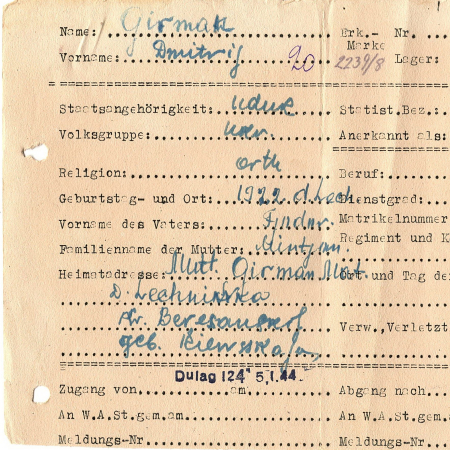 Name: Girman Erk.- Nr.
Marke
Vorname: Dmitrij 20 2239/8 Lager:
Staatsangehörigkeit: UdSSR Statist.Bez.:
Volksgruppe: Ukr. Anerkannt als:
Religion: orth Beruf:
Geburtstag- und Ort: 1922 d. Lech Dienstgrad:
Vorname des Vaters: Matrikelnummer
Familienname der Mutter: Regiment und K
Heimatadresse: Mutt. Girman Mot. Ort und Tag de
D. Lechniwka
Kr. Beresanskoj
geb. Kiewskaja Verw.,Verletzt
Dulag 124 5.1.44.
Zugang von am Abgang nach
An W.A.St.gem.am. An W.A.St.gem.
Meldungs-Nr Meldungs-Nr